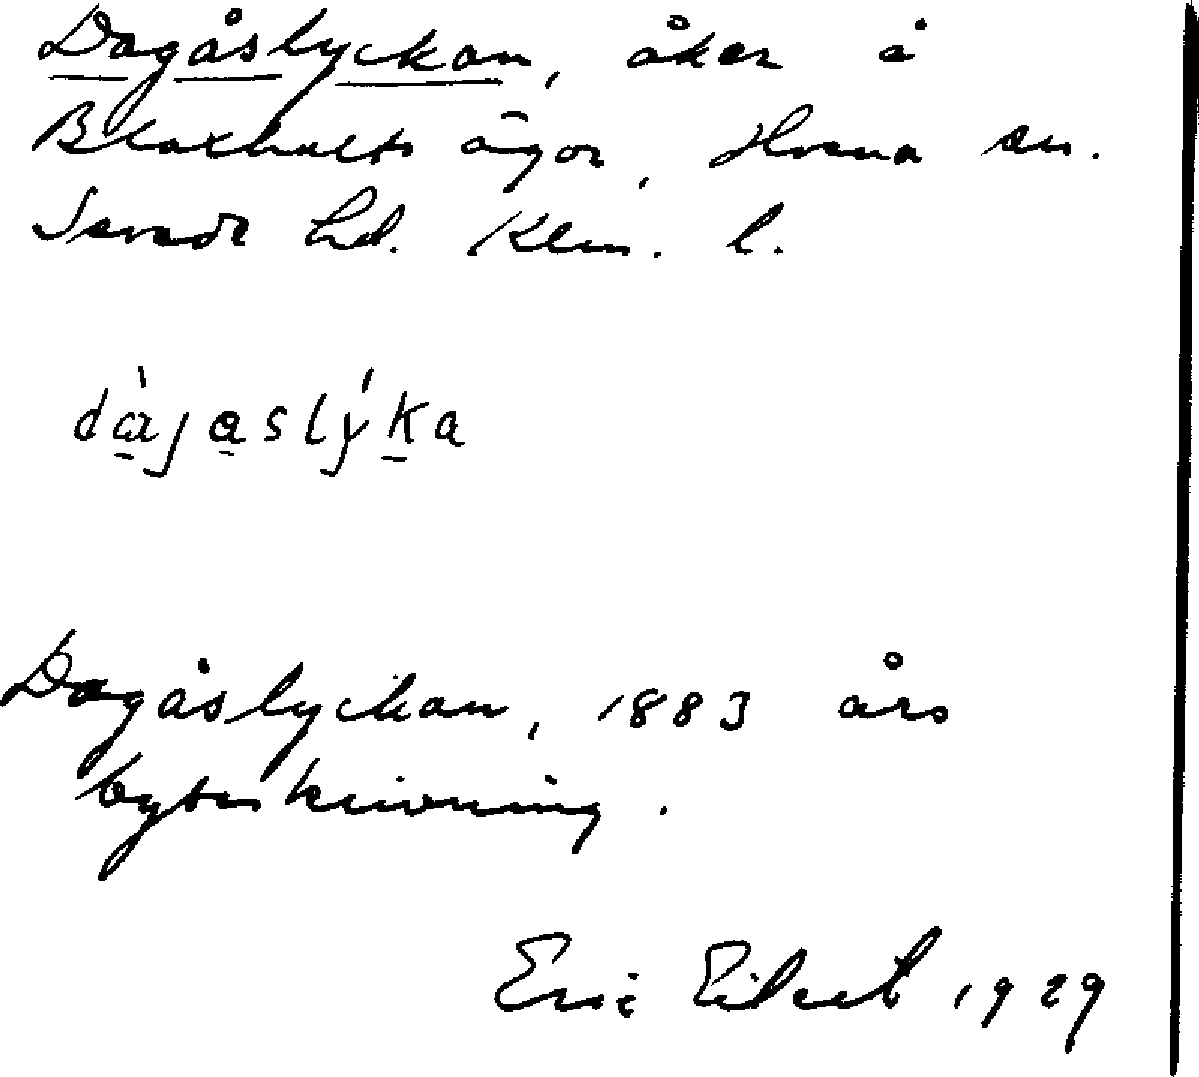 Dagåslyckan, åker å
Blaxhults ägor, Hvena sn.
Sevede hd. Klm. l.
dàjaslýka
Dagåslyckan, 1883 års
bybeskrivning.
Eric Eilert 1929